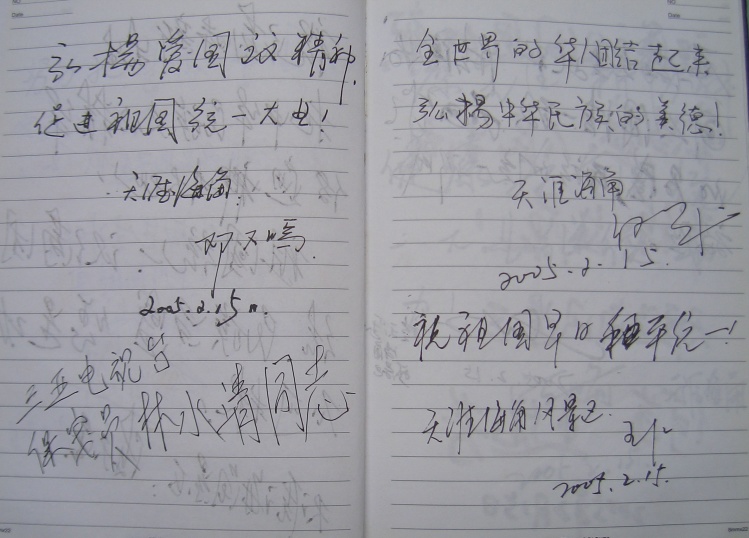 弘扬爱国主义精神,
促进祖国统一大业!
天涯海角.
2005.2.15日.
三亚电视台
保安员 林水清同志
全世界的华人团结起来
弘扬中华民族的美德!
天涯海角
2005.2.15.
祝祖国早日和平统一!
天涯海角风景区.
2005.2.15.